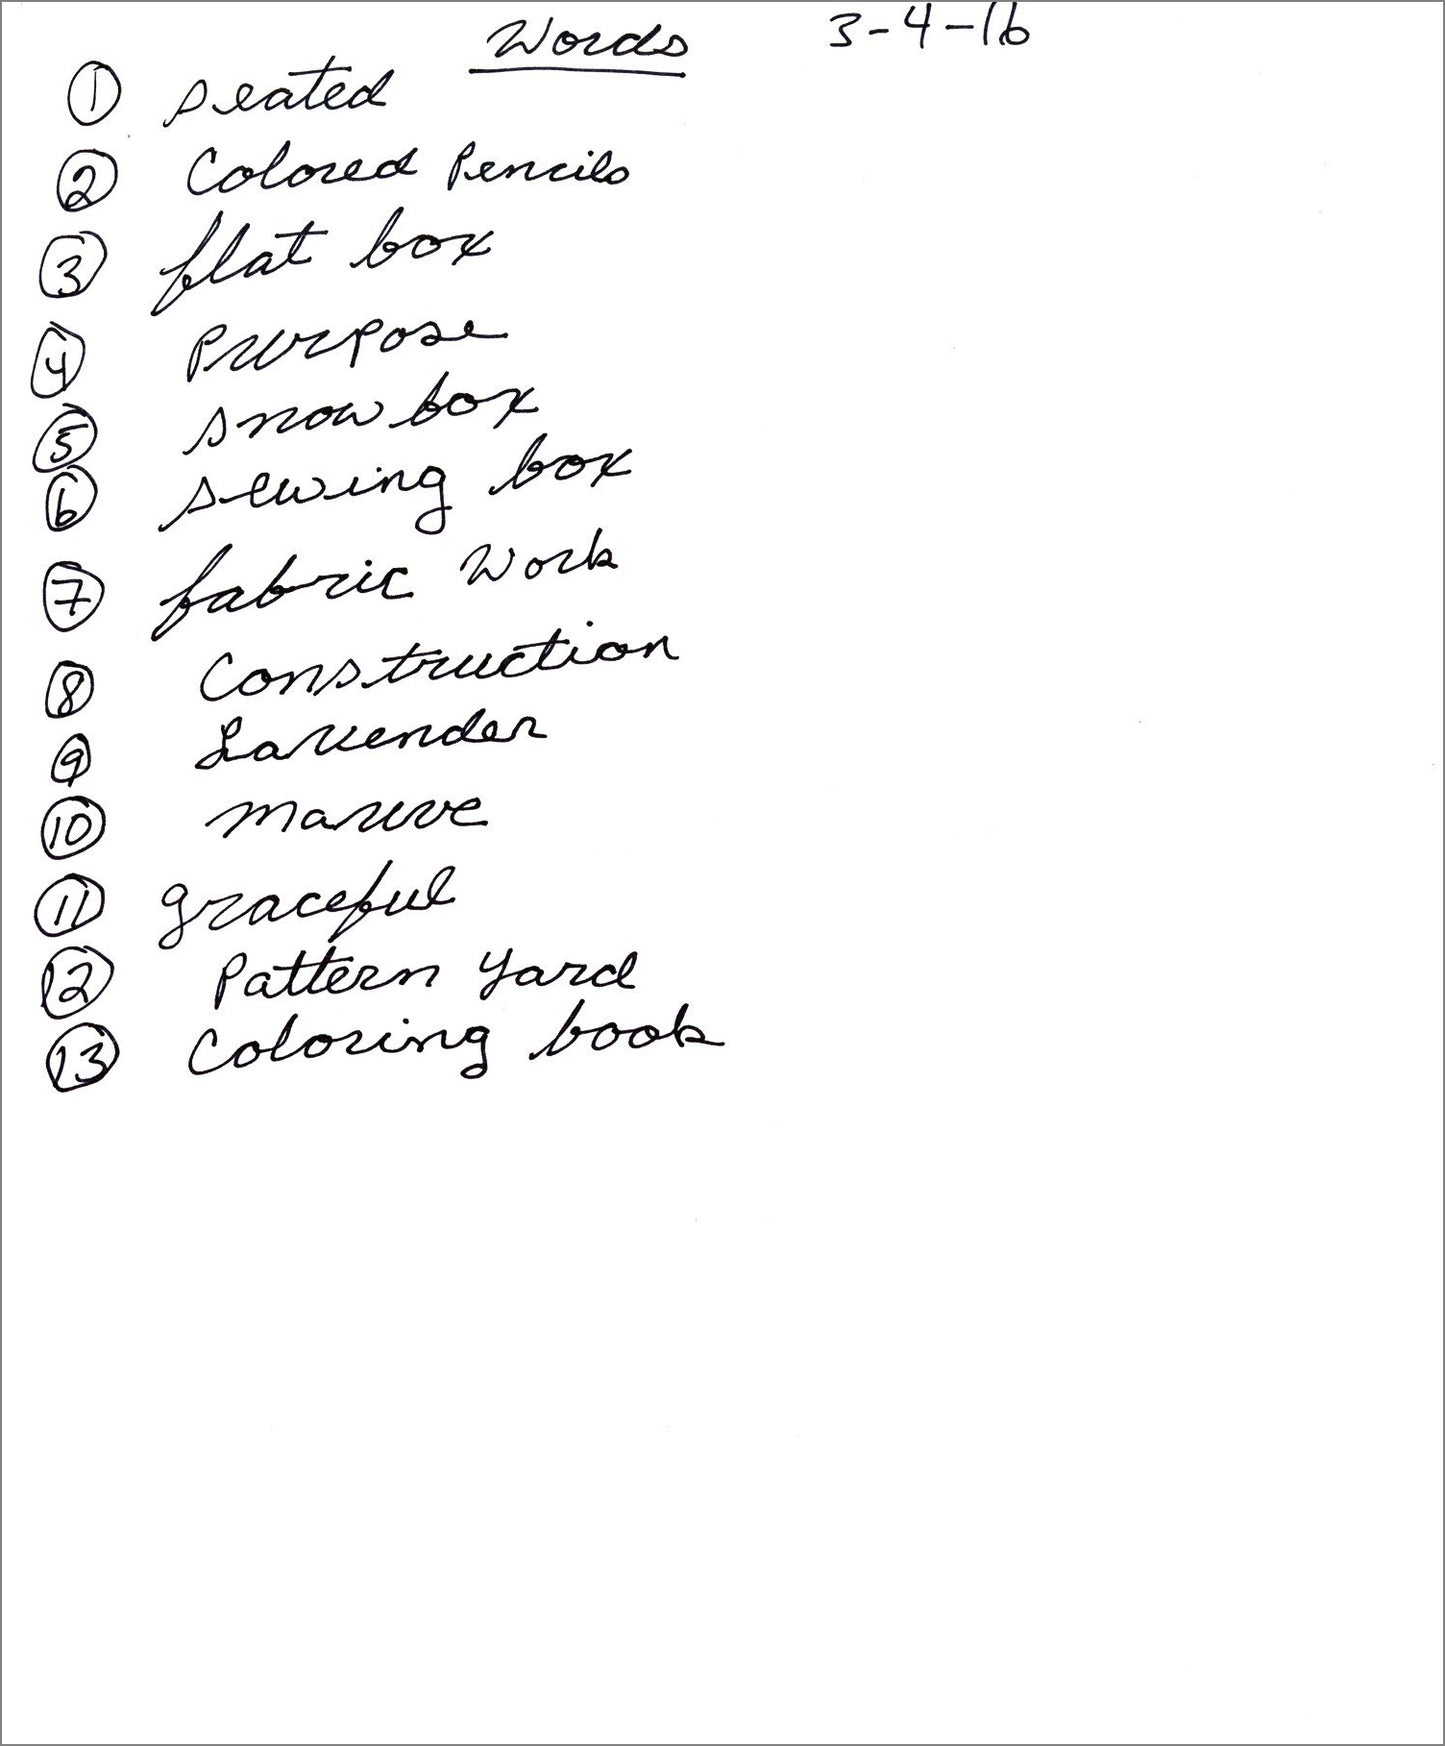 Words 3-4-16
1 seated
2 Colored Pencils
3 flat box
4 Purpose
5 snow box
6 sewing box
7 fabric Work
8 Construction
9 Lavender
10 mauve
11 graceful
12 Pattern Yard
13 Coloring book